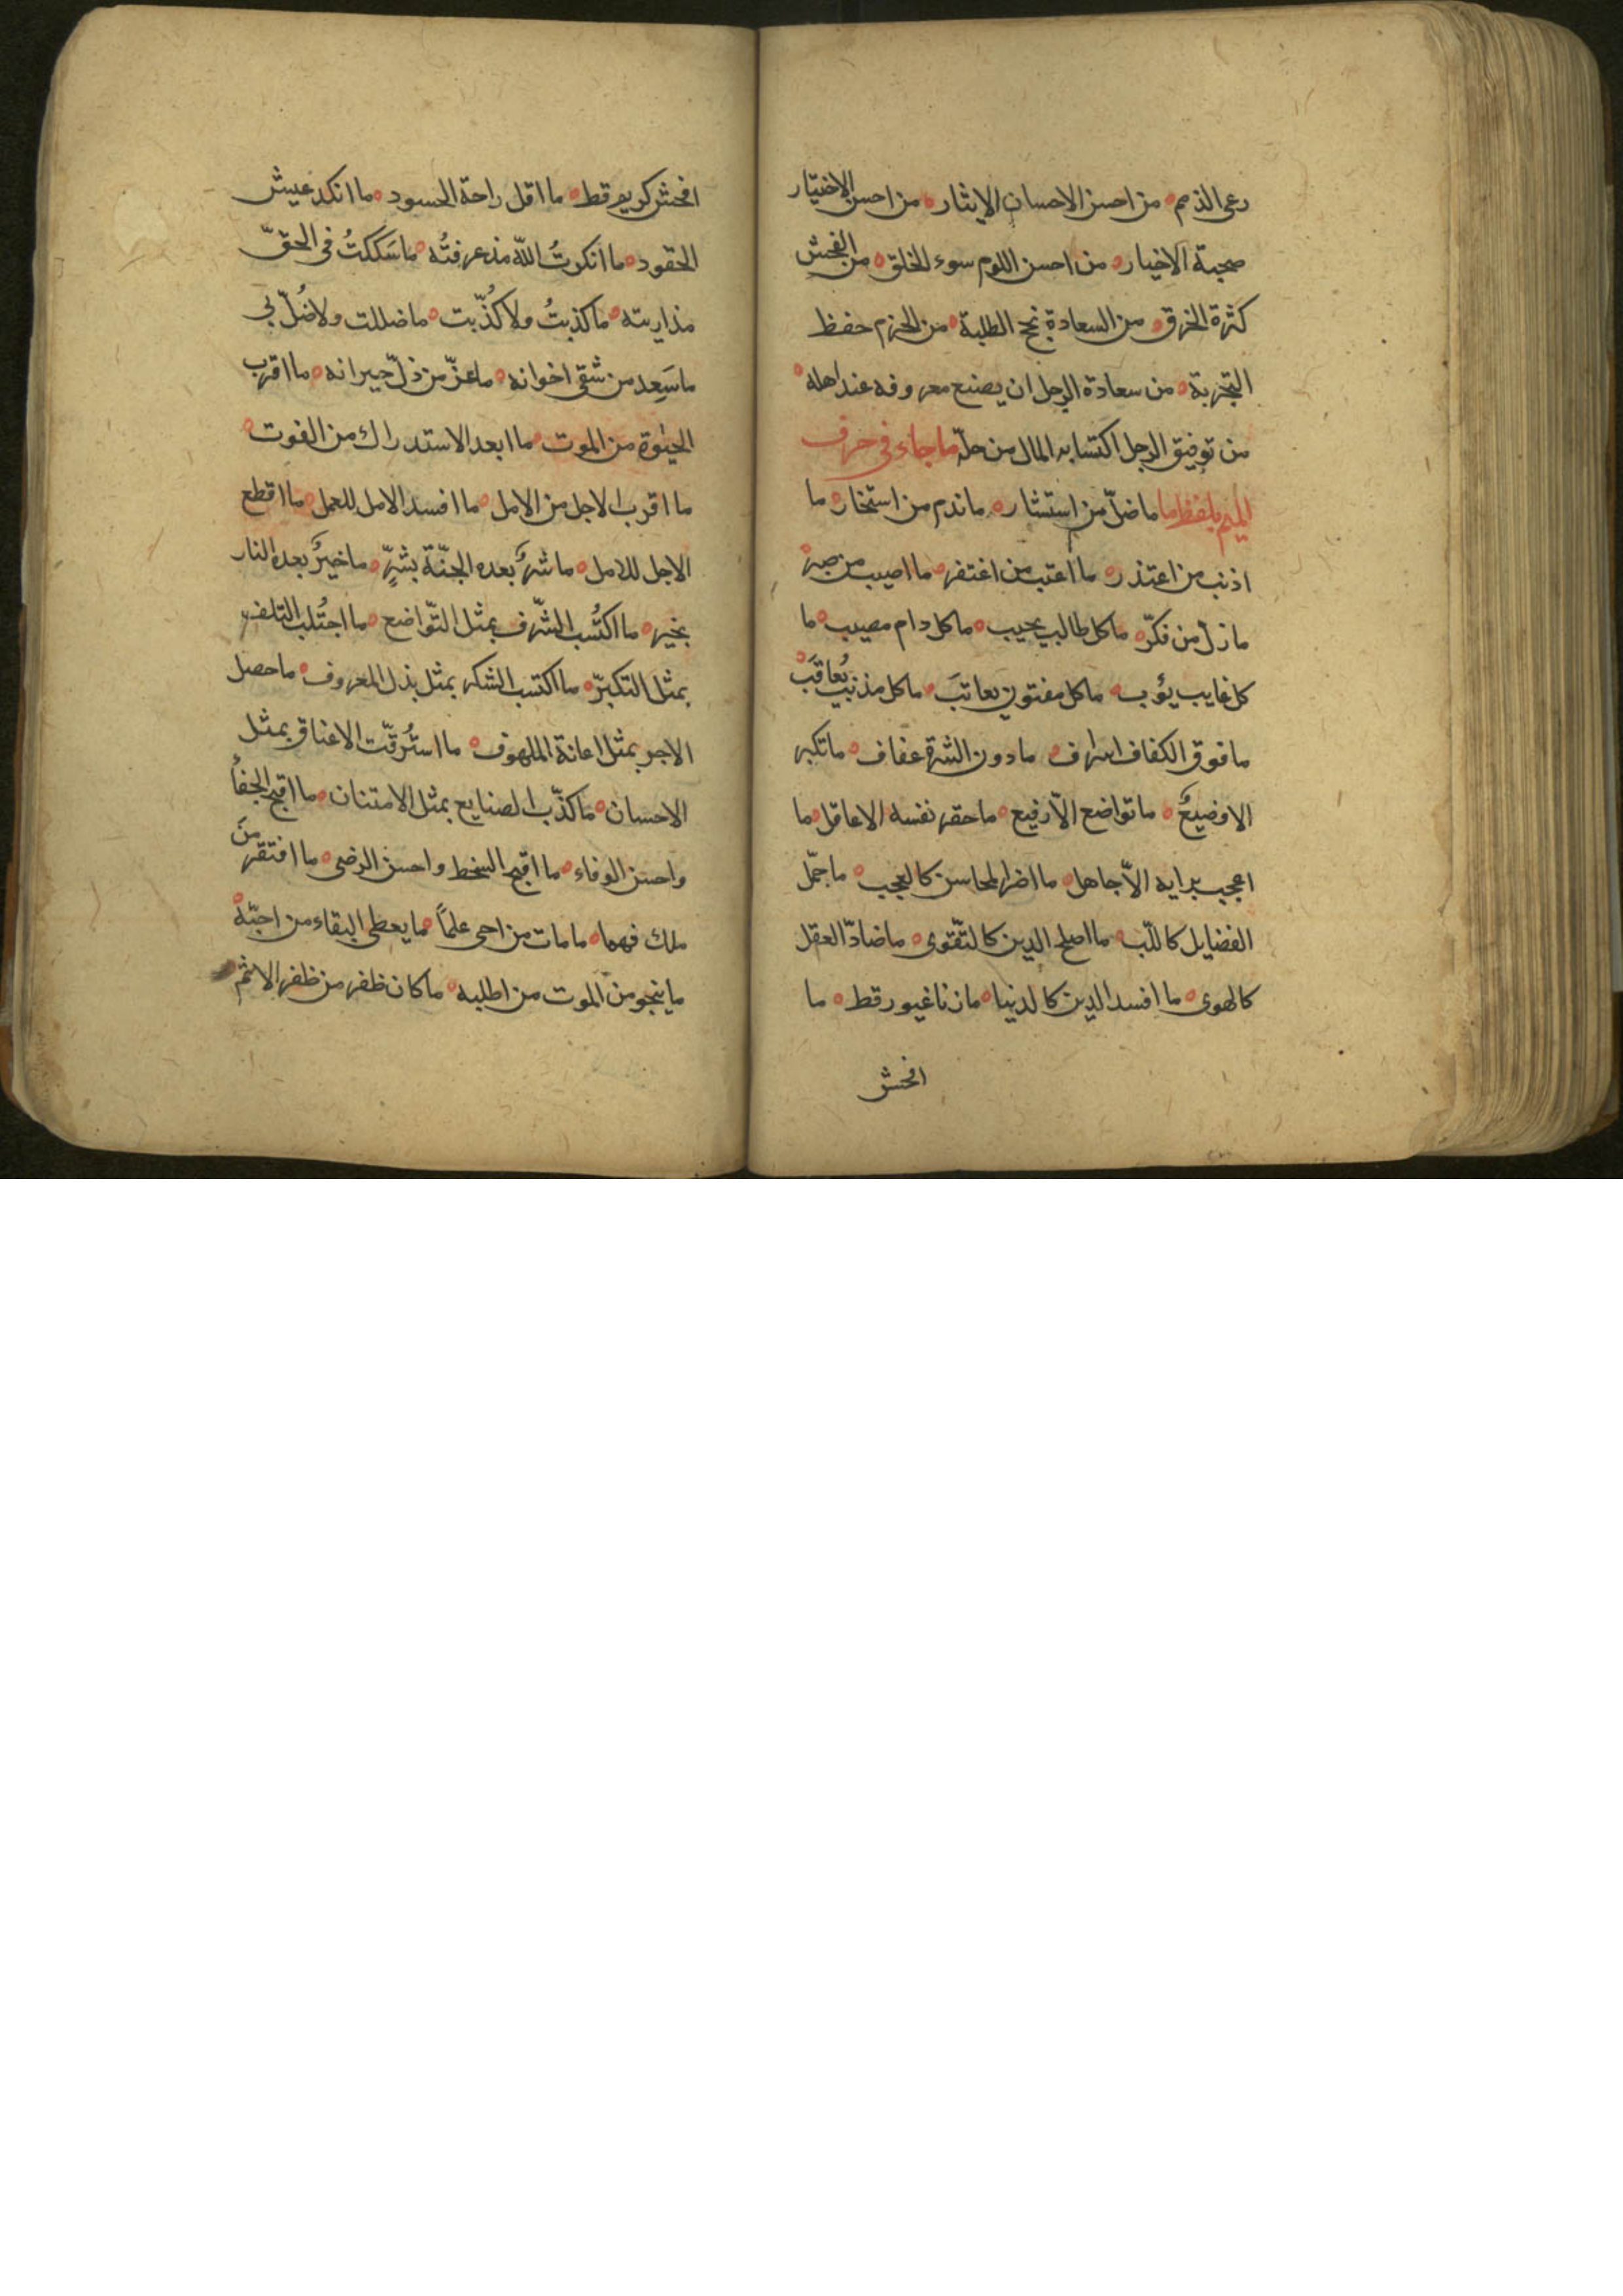 رعى الذمم ه من احسن الاحسان الايثار ه من احسن الاختيار
صحبة الاخيار ه من احسن اللوم سوء الخلق ه من الفحش
كثرة الخرق ه من السعادة نجح الطلبة ه من الحزم حفظ
التجربة ه من سعادة الرجل ان يصنع معروفه عند اهله ه
من توفيق الرجل اكتسابه المال من حلّه ما جاء فى حرف
الميم بلفظ ما ما ضلّ من استشار ه ما ندم من استخار ه ما
اذنب من اعتذر ه ما اعتب من اغتفر ه ما اصيب من صبر ه
ما زل من فكّر ه ما كل طالب يخيب ه ما كل رام مصيب ه ما
كل غايب يؤب ه ما كل مفتون يعاتبَ ه ما كل مذنب يُعاقَب ه
ما فوق الكفاف اسراف ه ما دون الشره عفاف ه ما تكبر
الا وضيعٌ ه ما تواضع الاّ رفيع ه ما حقر نفسه الا عاقل ه ما
اعجب برايه الاّ جاهل ه ما اضر المحاسن كالعجب ه ما جمّل
الفضايل كاللّب ه ما اصلح الدين كالتّقوى ه ما ضادّ العقل
كالهوى ه ما افسد الدين كالدنيا ه ما زنا غيور قط ه ما
افحش
افحش كريم قط ه ما اقل راحة الحسود ه ما انكد عيش
الحقود ه ما انكرتُ اللّه مذ عرفتُه ه ما شككتُ فى الحقّ
مذ اريته ه ما كذبتُ ولا كُذّبت ه ما ضللت ولا ضُلّ بى
ما سَعِد من شقى اخوانه ه ما عزّ من ذلّ جيرانه ه ما اقرب
الحيوة من الموت ه ما ابعد الاستدراك من الفوت ه
ما اقرب الاجل من الامل ه ما افسد الامل للعمل ه ما اقطع
الاجل للامل ه ما شرٌّ بعده الجنّة بشرٍّ ه ما خيرٌ بعده النار
بخير ه ما اكتُسب الشّرف بمثل التّواضع ه ما اجتُلب التلف
بمثل التكبّر ه ما اكتسب الشكر بمثل بذل المعروف ه ما حصل
الاجر بمثل اعانة الملهوف ه ما استُرقّت الاعناق بمثل
الاحسان ه ما كذّب الصنايع بمثل الامتنان ه ما اقبح الجفأ
واحسن الوفاء ه ما اقبح السخط واحسن الرضى ه ما افتقر من
ملك فهما ه ما مات من احى علمًا ه ما يعطى البقاء من احبّه ه
ما ينجو من الموت من اطلبه ه ما كان ظفر من ظفر الاثم ه